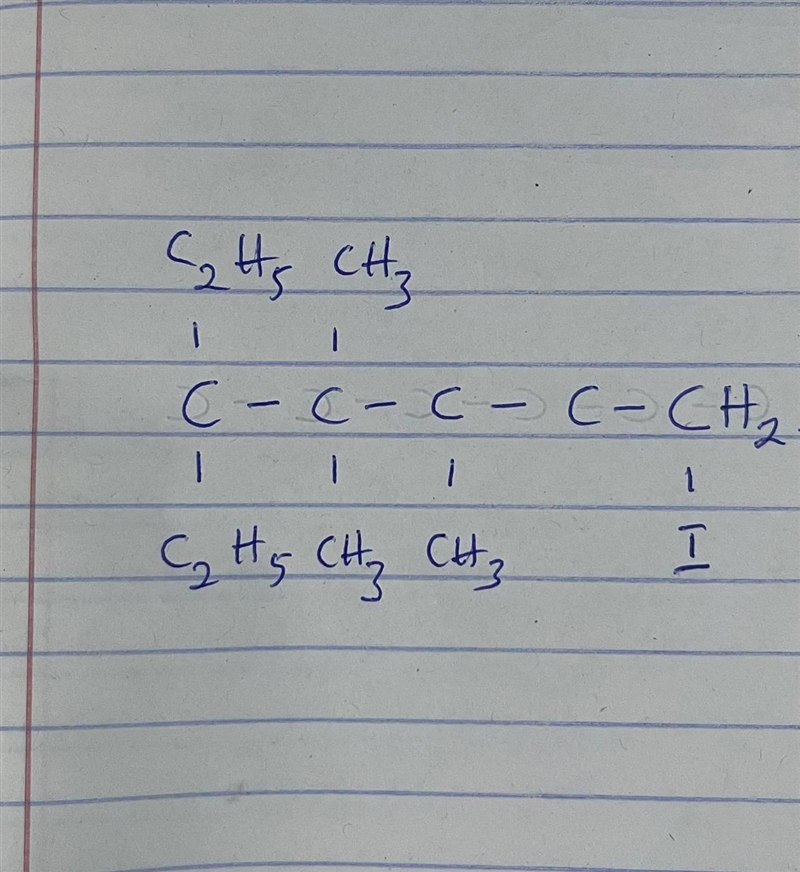 C₂H₅ CH₃
C - C - C - C - CH₂
C₂H₅ CH₃ CH₃ I